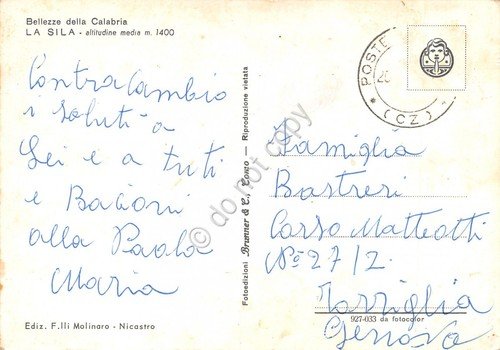 Bellezze della Calabria
LA SILA - altitudine media m. 1400
Contracambio
i saluti a
Lei e a tuti
e Bacioni
alla Paola
Maria
Ediz. F.lli Molinaro - Nicastro
Fotoedizioni Brunner & C., Como - Riproduzione vietata
POSTE
(CZ)
Famiglia
Bastreri
Corso Matteotti
No 27/2
Torriglia
927-033 da fotocolor
Genova
do not copy